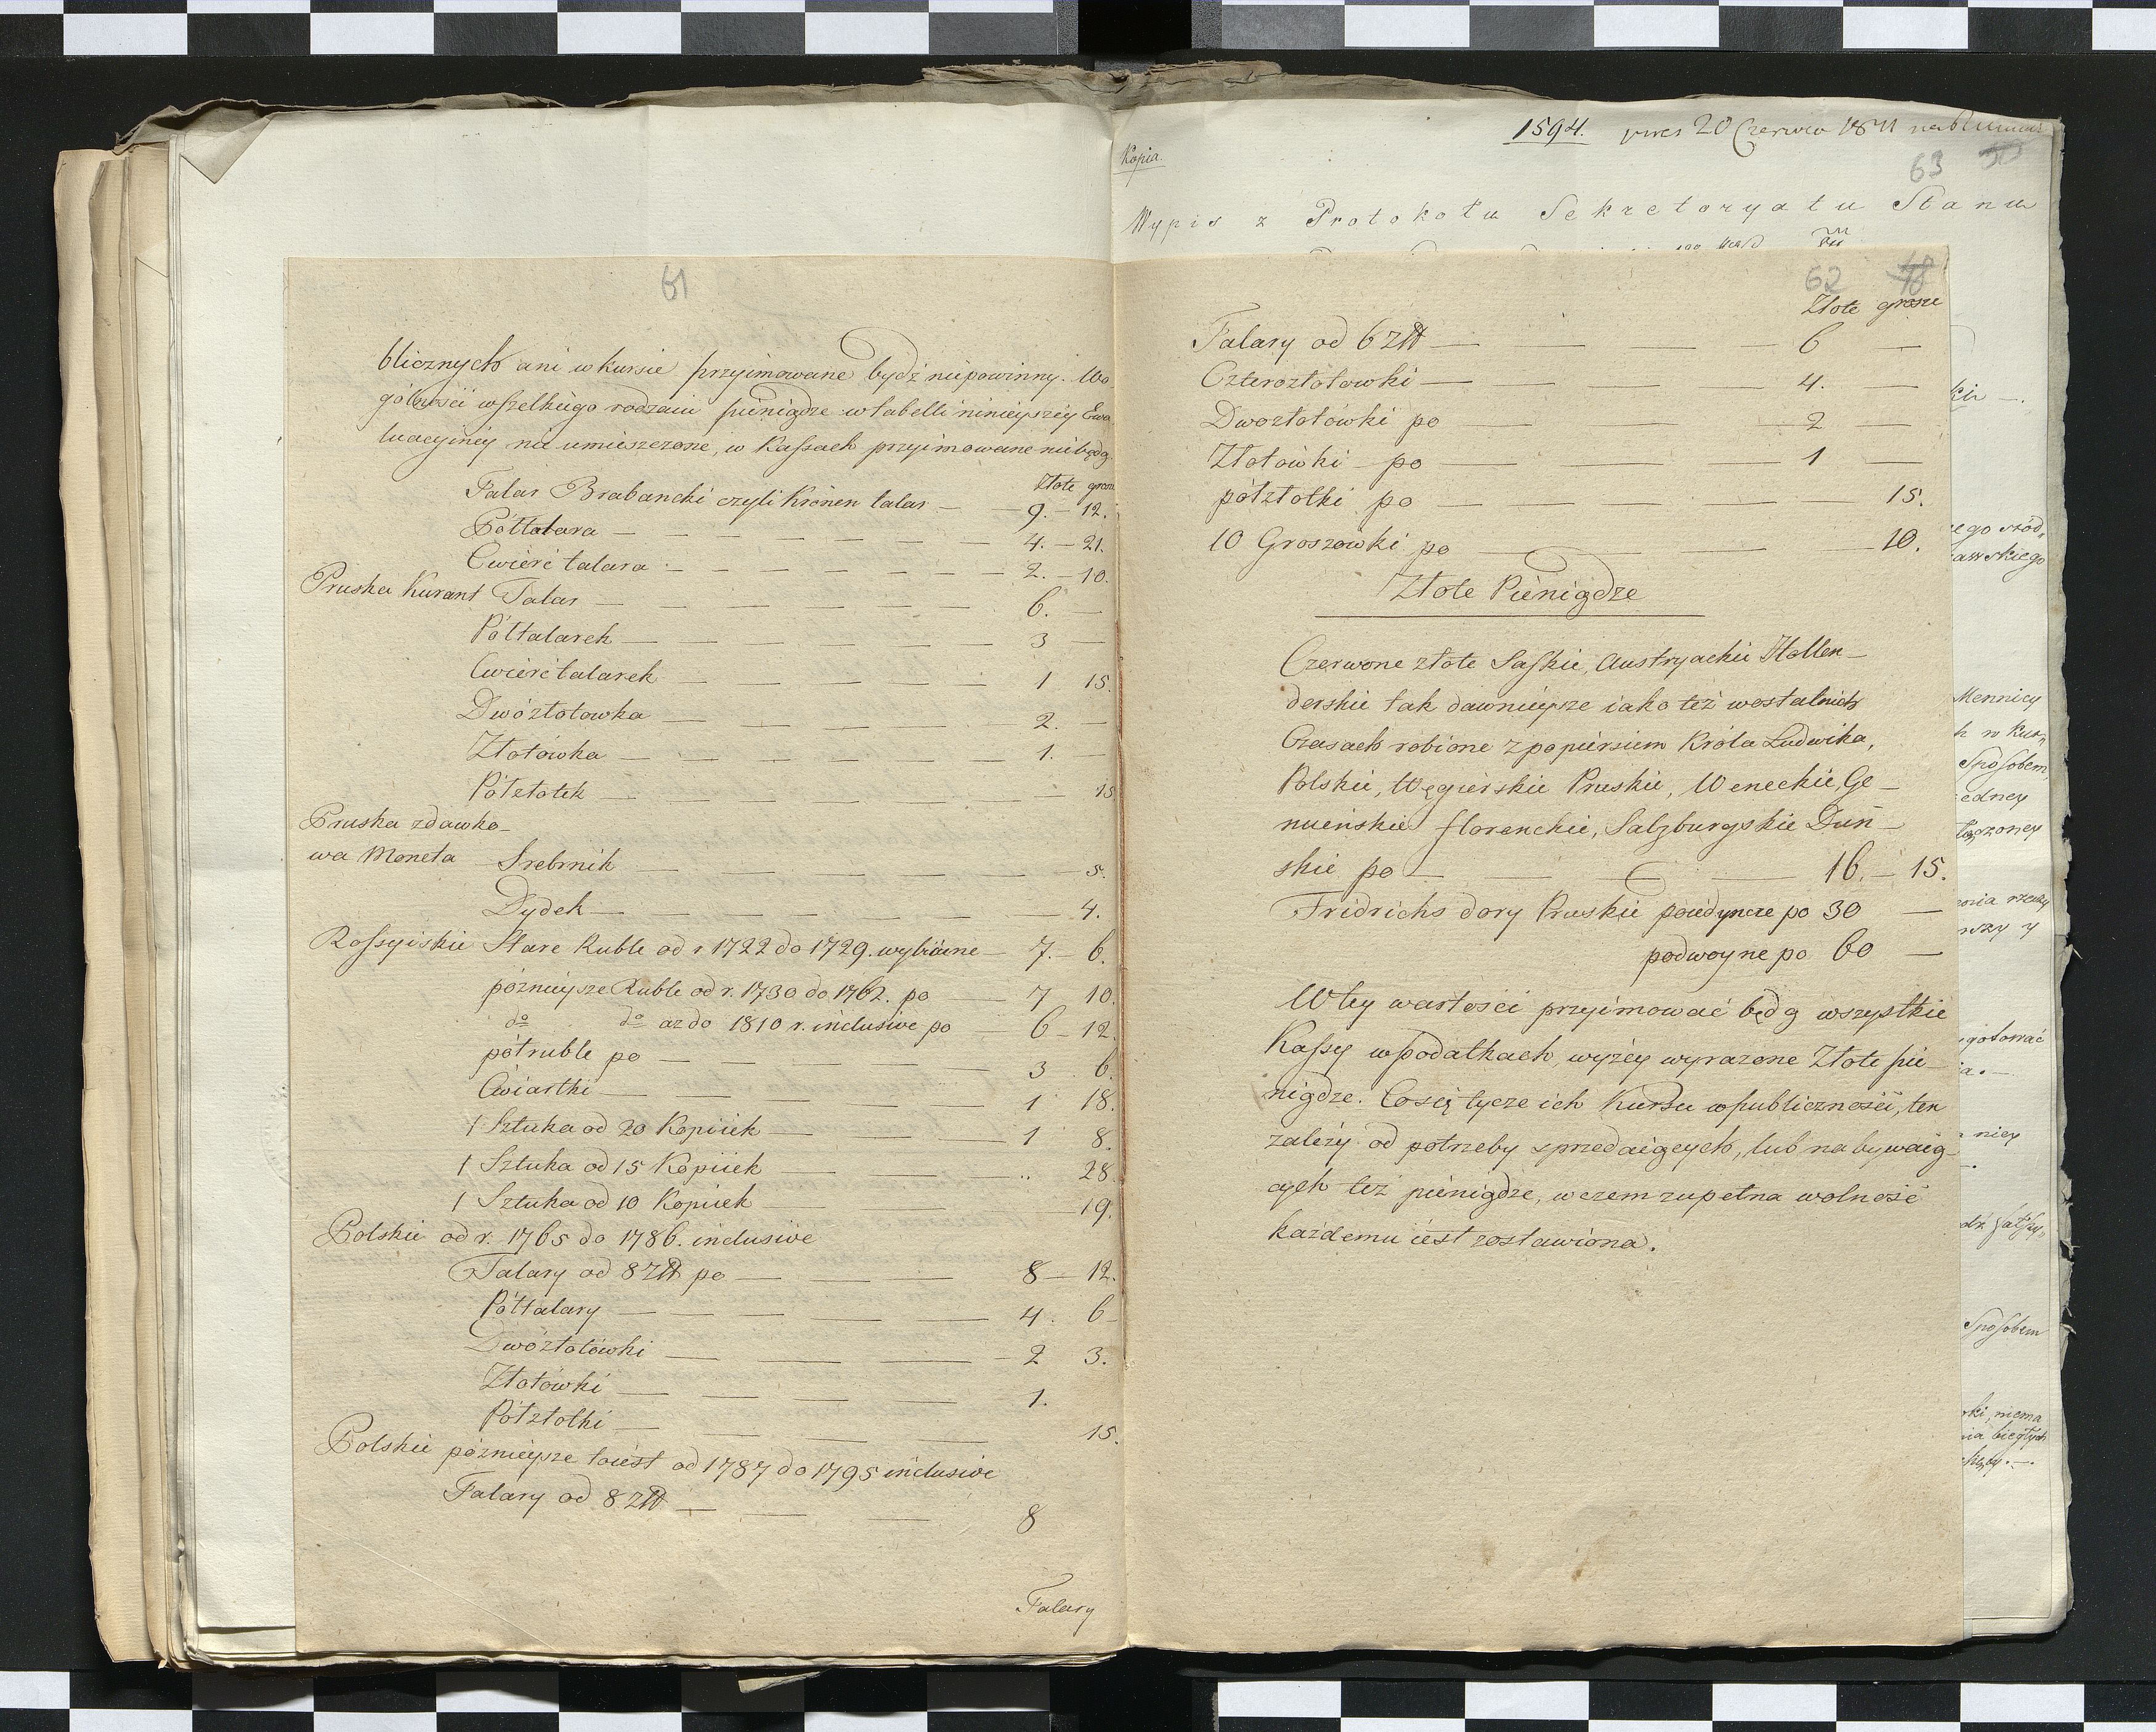 61
blicznych ani w kursie przyimowane bydź niepowinny. Wo
gólności wszelkiego rodzaiu pieniądze w tabelli ninieyszéy Ewa
luacyinéy nie umieszczone, w Kassach przyimowane niebędą.
Złote grosze
Talar Brabancki czyli Kronen talar — 9. — 12.
Półtalara — 4. — 21.
Cwierć talara — 2. — 10.
Pruska Kurant Talar — 6. —
Póltalarek — 3 —
Cwierćtalarek — 1 15.
Dwózłotowka — 2. —
Złotówka — 1. —
Półzłotek — 15
Pruska zdawko-
wa Moneta Srebrnik — 5.
Dydek — 4.
Rossyiskie Stare Ruble od r. 1722 do 1729. wybiórne — 7. — 6.
pózniéysze Ruble od r. 1730 do 1762. po — 7 10.
do do az do 1810 r. inclusive po — 6 — 12.
półruble po — 3 6.
Cwiartki — 1 18.
1 Sztuka od 20 Kopiiek — 1 8.
1 Sztuka od 15 Kopiiek — .. 28.
1 Sztuka od 10 Kopiiek — 19.
Polskie od r. 1765 do 1786. inclusive
Talary od 8 Złł po — 8 — 12.
Półtalary — 4. 6
Dwózłotówki — 2 3.
Złotówki — 1.
Półzłotki — 15.
Polskie pózniéysze toiest od 1787 do 1795 inclusive
Talary od 8 Złł — 8
Talary
1594. pres 20 Czerwca 1811
Kopia.
63
Wypis z Protokołu Sekretaryatu Stanu
62 48
Złote grosze
Talary od 6 Złł — 6 —
Czterozłotowki — 4. —
Dwozłotówki po — 2 —
Złotówki po — 1 —
półzłotki po — 15.
10 Groszówki po — 10.
Złote Pieniądze
Czerwone złote Saskie, Austryackie Hollen-
derskie tak dawnieysze iako też wostatnich
Czasach robione z popiersiem Króla Ludwika,
Polskie, Węgierskie Pruskie, Weneckie, Ge-
nueńskie florenckie, Salzburgskie Duń-
skie po — 16. — 15.
Fridrichs dory Pruskie poiedyncze po 30 —
podwoyne po 60 —
W téy wartości przyimować będą wszystkie
Kassy w podatkach, wyżéy wyrazone Złote pie-
niądze. Cosię tycze ich Kursu w publiczności, ten
zależy od potrzeby sprzedaiących, lub nabywaią-
cych też pieniądze, w czem zupełna wolność
każdemu iest zostawiona.
ego
awskiego
Mennicy
Sposobem,
edney
Sposobem
niema